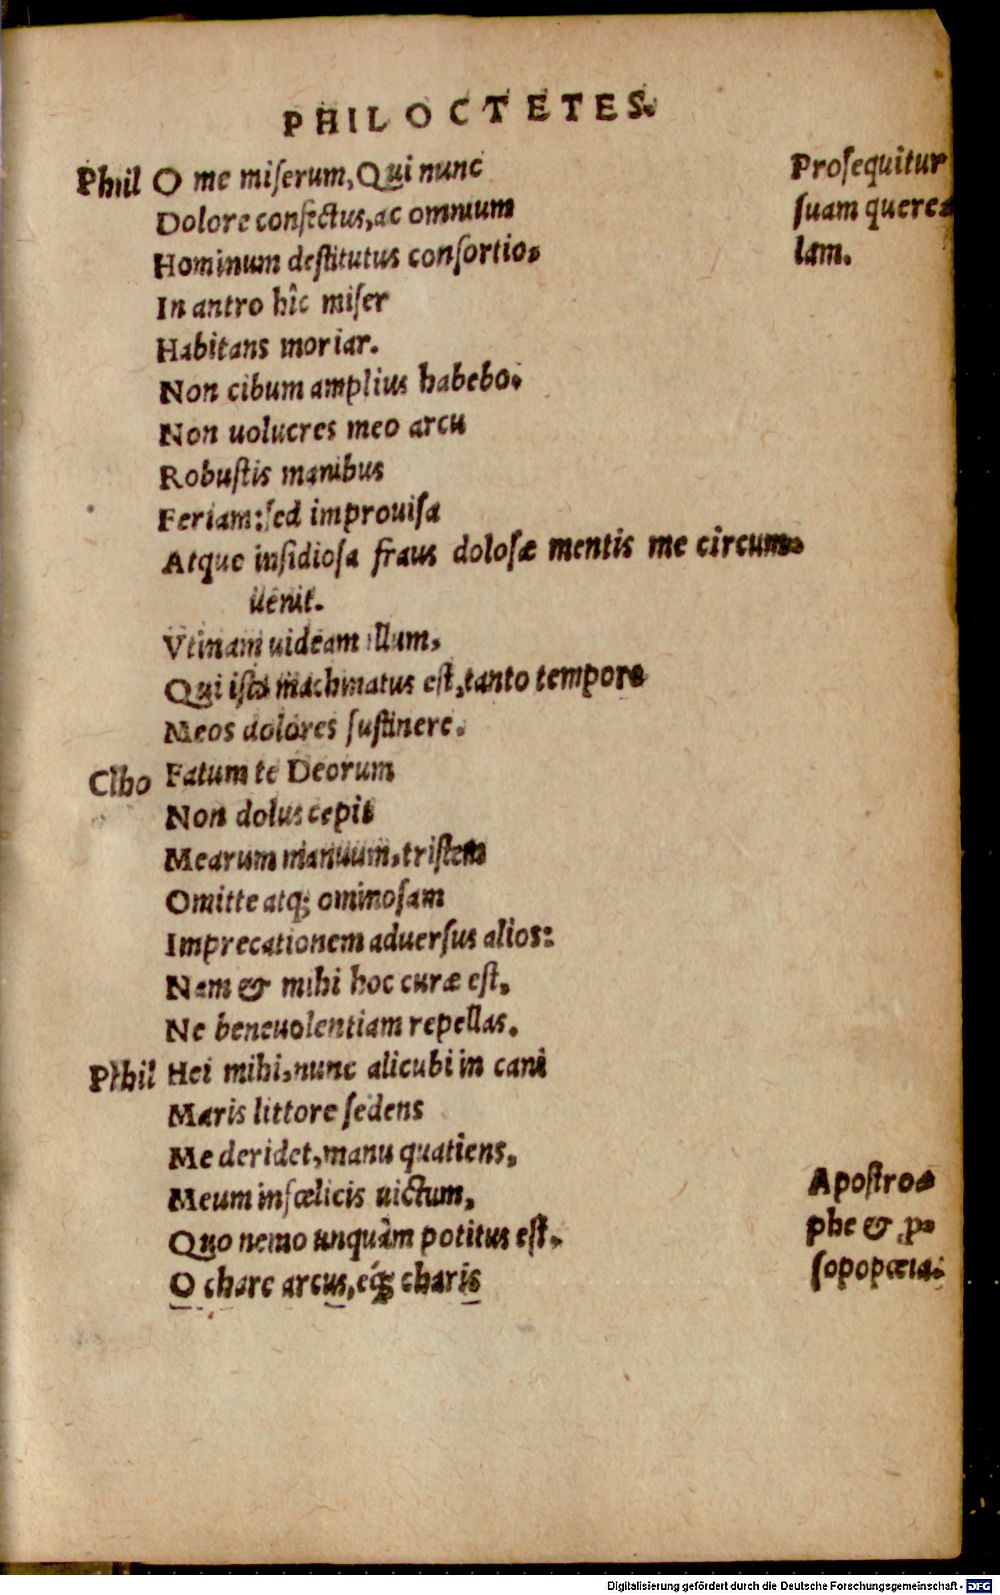 PHILOCTETES.
Phil O me miserum, Qui nunc
Dolore confectus, ac omnium
Hominum destitutus consortio.
In antro hîc miser
Habitans moriar.
Non cibum amplius habebo.
Non uolucres meo arcu
Robustis manibus
Feriam: sed improuisa
Atque insidiosa fraus dolosæ mentis me circum-
uenit.
Vtinam uideam illum,
Qui ista machinatus est, tanto tempore
Meos dolores sustinere.
Cho Fatum te Deorum
Non dolus cepit
Mearum manuum, tristem
Omitte atq; ominosam
Imprecationem aduersus alios:
Nam & mihi hoc curæ est,
Ne beneuolentiam repellas.
Phil Hei mihi, nunc alicubi in cani
Maris littore sedens
Me deridet, manu quatiens,
Meum infœlicis uictum,
Quo nemo unquàm potitus est.
O chare arcus, eq́; charis
Prosequitur
suam quere-
lam.
Apostro-
phe & p-
sopopœia.
Digitalisierung gefördert durch die Deutsche Forschungsgemeinschaft - DFG